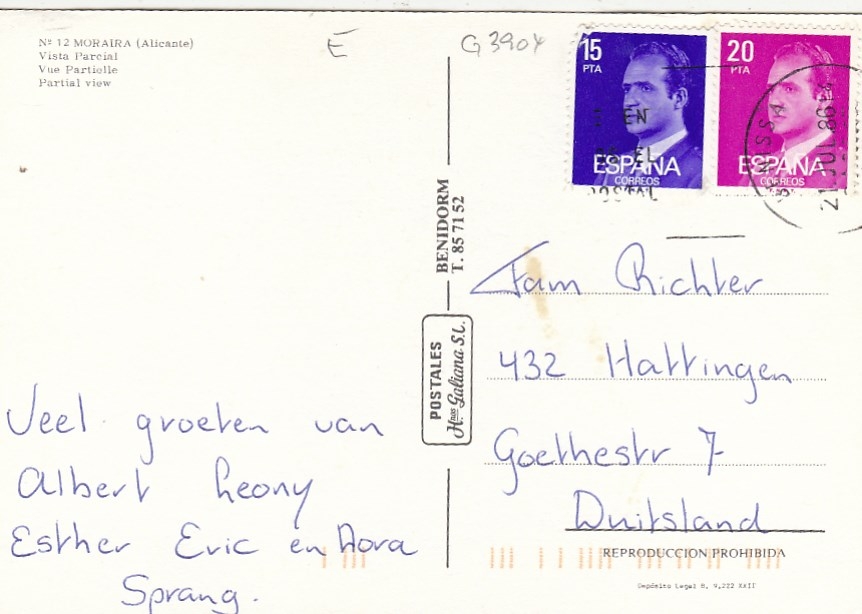 Nº 12 MORAIRA (Alicante)
Vista Parcial
Vue Partielle
Partial view
E
G3904
15
PTA
ESPAÑA
CORREOS
20
PTA
ESPAÑA
CORREOS
EN
EL
POSTAL
21 JUL 86
BENIDORM
T. 85 71 52
POSTALES
Hnos Galiana S.L.
Veel groeten van
Albert Leony
Esther Eric en
Sprang.
Fam Richter
432 Hattingen
Goethestr 7
Duitsland
REPRODUCCION PROHIBIDA
Depósito Legal B. 9,222 XXII